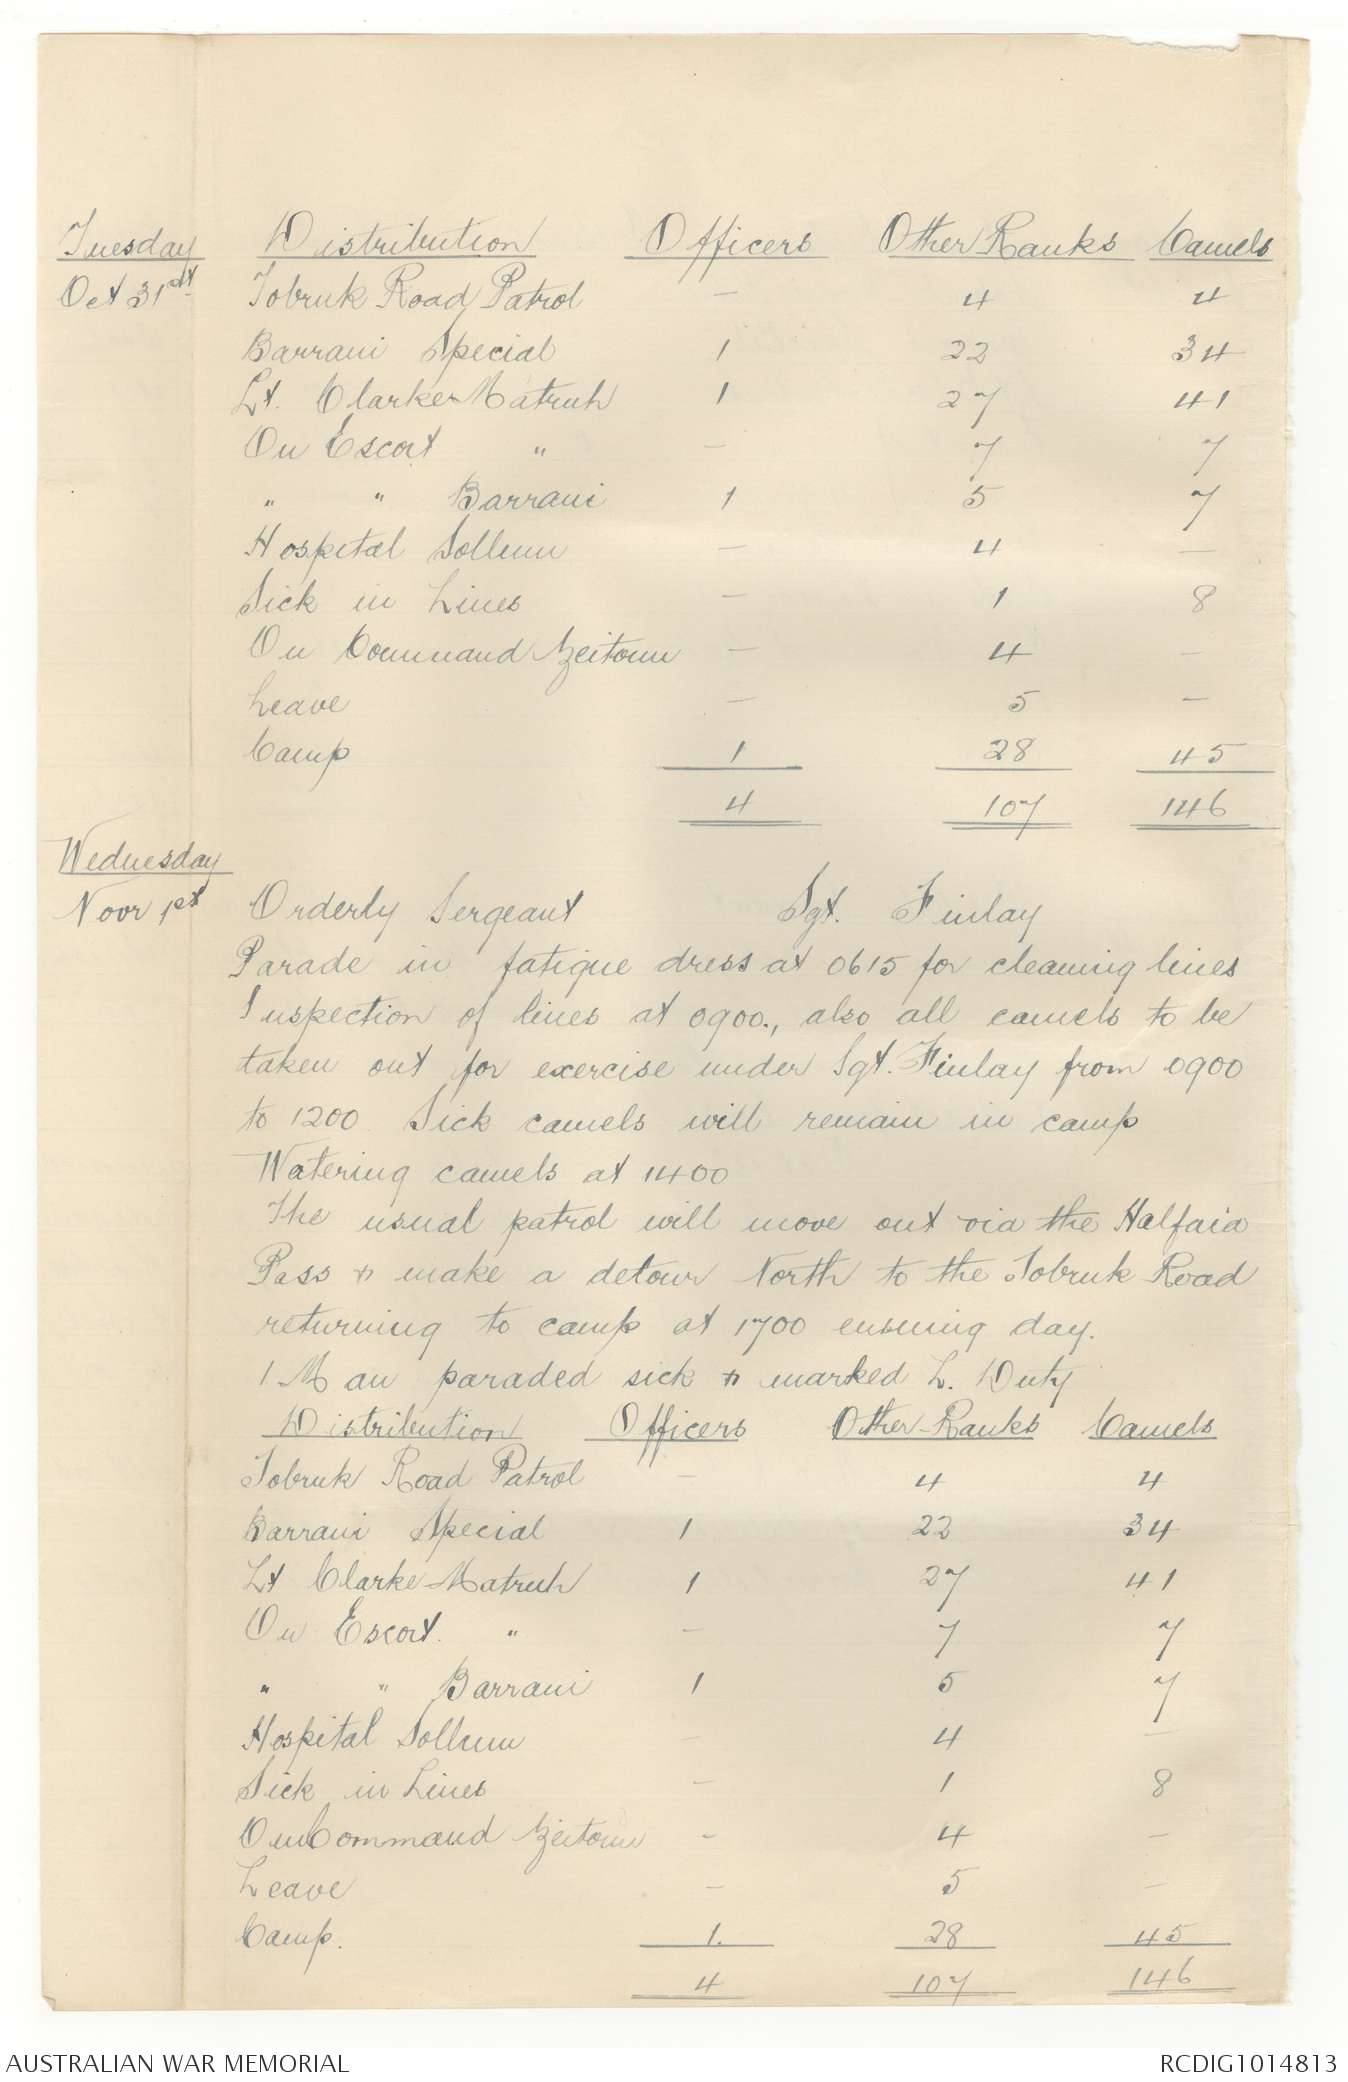 Tuesday Distribution Officers Other Ranks Camels
Oct 31st Tobruk Road Patrol — 4 4
Barrani Special 1 22 34
Lt. Clarke Matruh 1 27 41
On Escort " — 7 7
" " Barrani 1 5 7
Hospital Sollum — 4 —
Sick in Lines — 1 8
On Command Zeitoun — 4 —
Leave — 5 —
Camp 1 28 45
4 107 146
Wednesday
Novr 1st Orderly Sergeant Sgt. Finlay
Parade in fatigue dress at 0615 for cleaning lines
Inspection of lines at 0900., also all camels to be
taken out for exercise under Sgt. Finlay from 0900
to 1200. Sick camels will remain in camp
Watering camels at 1400
The usual patrol will move out via the Halfaia
Pass & make a detour North to the Tobruk Road
returning to camp at 1700 ensuing day.
1 Man paraded sick & marked L. Duty
Distribution Officers Other Ranks Camels
Tobruk Road Patrol — 4 4
Barrani Special 1 22 34
Lt Clarke Matruh 1 27 41
On Escort. " — 7 7
" " Barrani 1 5 7
Hospital Sollum — 4 —
Sick in Lines — 1 8
On Command Zeitoun — 4 —
Leave — 5 —
Camp. 1. 28 45
4 107 146
AUSTRALIAN WAR MEMORIAL RCDIG1014813